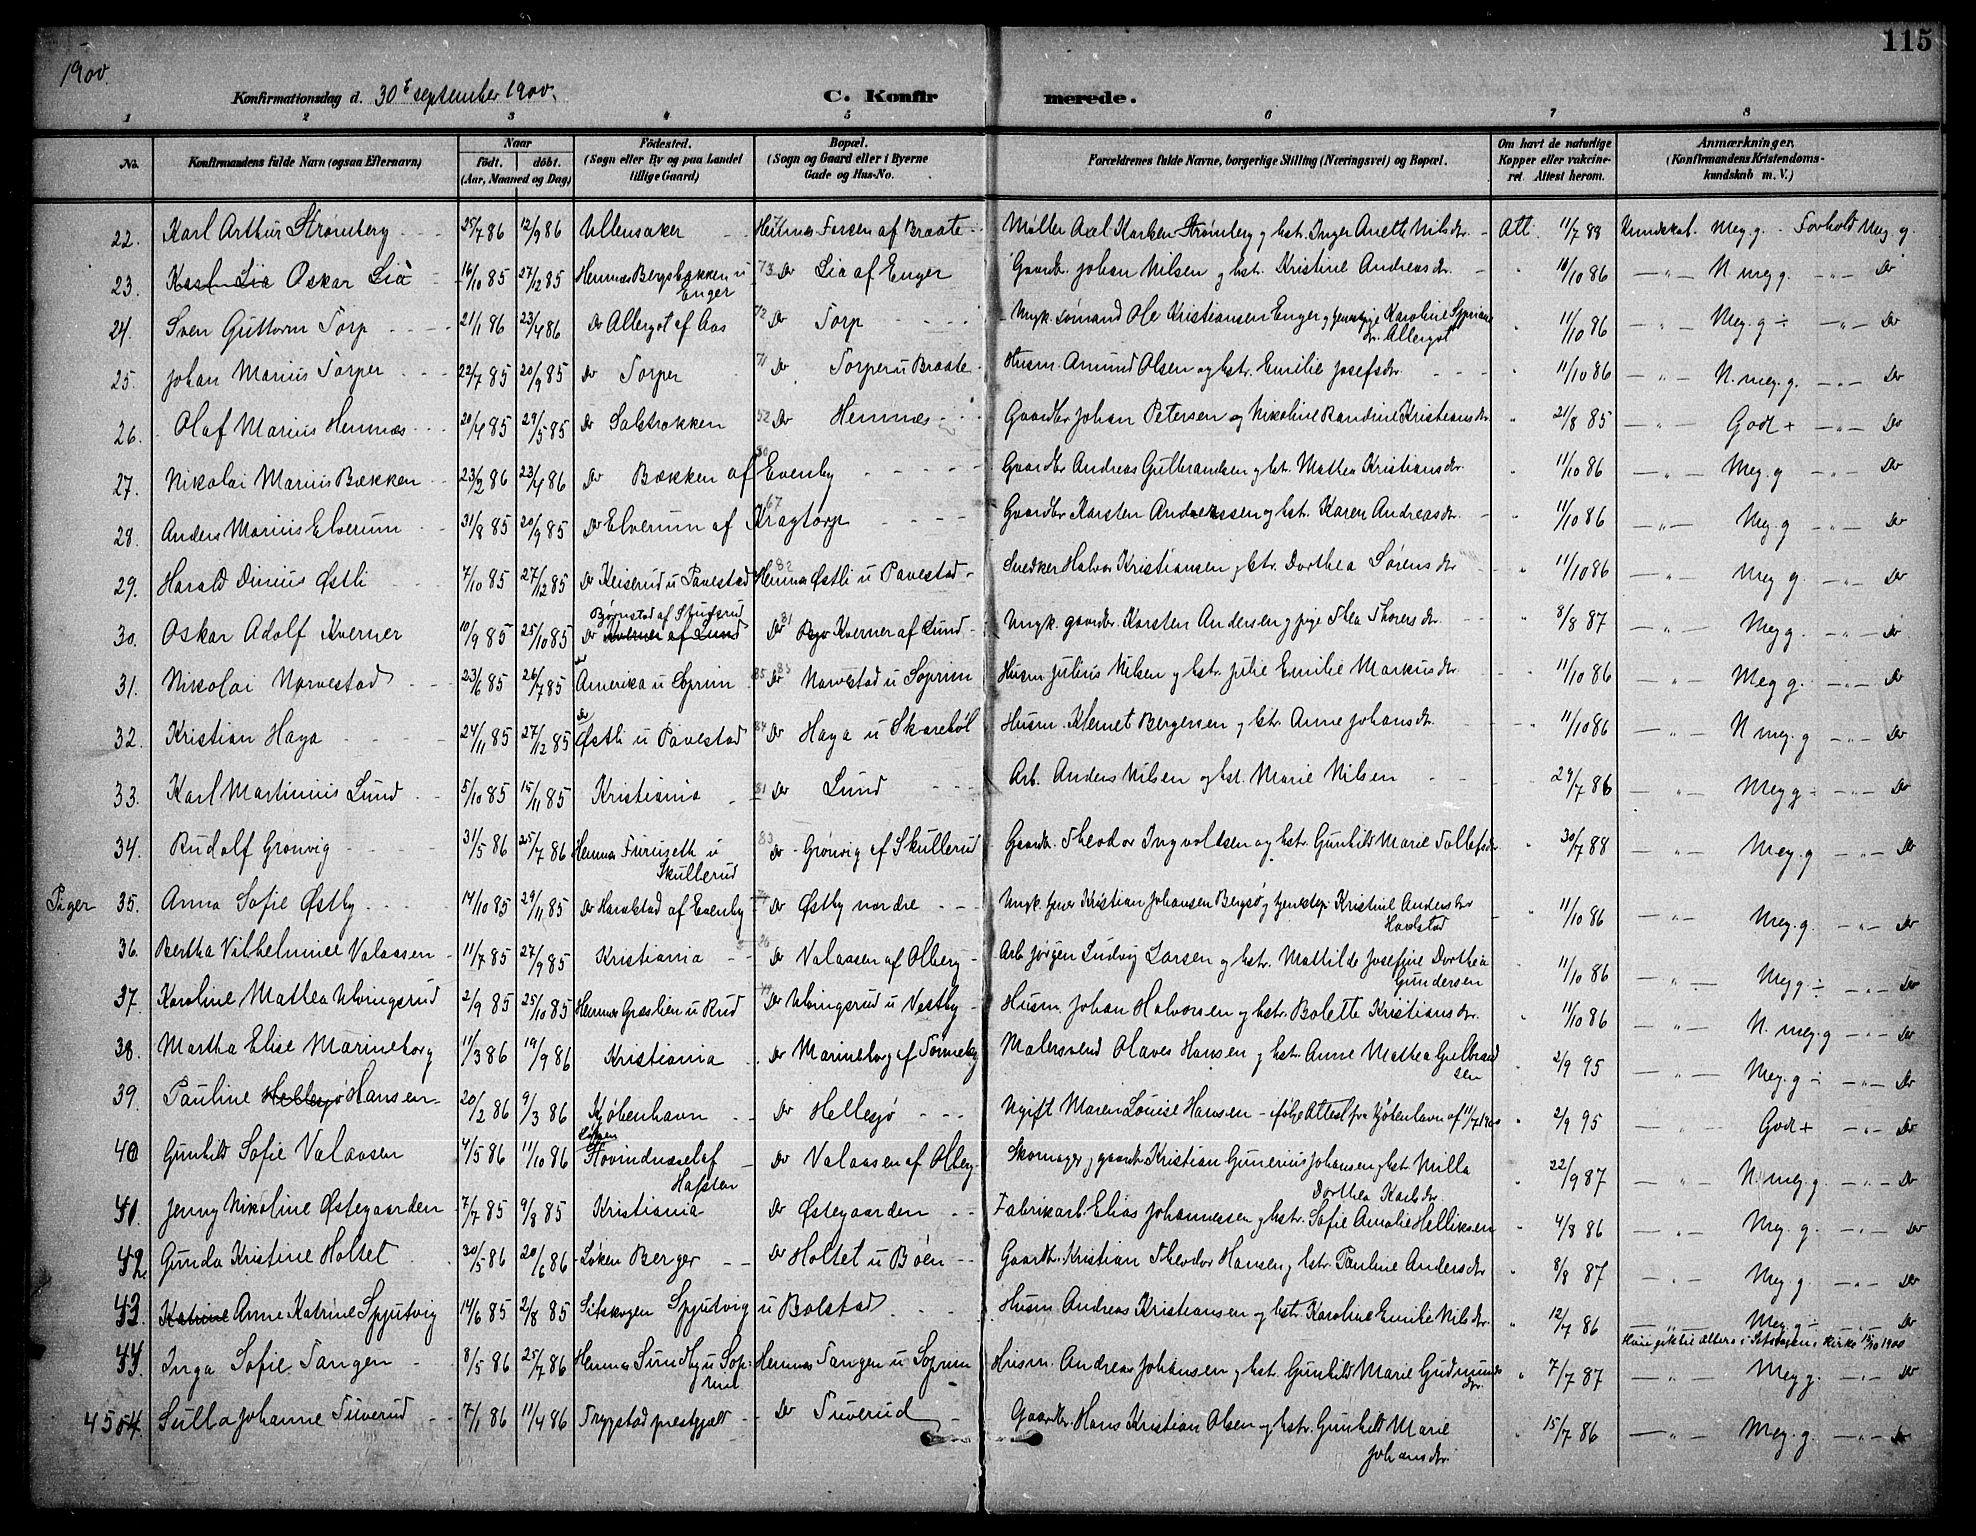 115
1900.
Konfirmationsdag d. 30te september 1900. C. Konfirmerede.
1 2 3 4 5 6 7 8
No. Konfirmandens fulde Navn (ogsaa Efternavn) Naar født. døbt. (Aar, Maaned og Dag) Fødested. (Sogn eller By og paa Landet tillige Gaard) Bopæl. (Sogn og Gaard eller i Byerne Gade og Hus-No. Forældrenes fulde Navne, borgerlige Stilling (Næringsvei) og Bopæl. Om havt de naturlige Kopper eller vakcineret. Attest herom. Anmærkninger. (Konfirmandens Kristendomskundskab m. V.)
22. Karl Arthur Strømberg 25/7 86 12/9 86 Ullensaker Hemnes Forsen af Braate Møller Axel Karlsen Strømberg og hstr. Inger Anette Nilsdtr. Att. 11/7 88 Kundskab. Meg. g. Forhold Meg. g.
23. Karl Lia Oskar Lia 16/10 85 27/12 85 Hemnes Bergsbakken u Enger 73 Do Lia af Enger Gaardbr. Johan Nilsen og hstr. Kristine Andreasdr. " 10/10 86 — " — N. meg g. — " — Do
24. Sven Guttorm Torp 21/1 86 23/4 86 Do Allergot af Aas 72 Do Torp Ungk. Sømand Ole Kristiansen Enger og pige Karoline Syprians dr. Allergot " 11/10 86 — " — Meg. g ÷ — " — Do
25. Johan Marius Torper 22/7 85 20/9 85 Do Torper 71 Do Torper u Braate Husm. Amund Olsen og hstr. Emilie Josefsdr " 11/10 86 — " — N. meg. g. — " — Do
26. Olaf Marius Hemnæs 20/4 85 29/5 85 Do Salstrokken 52 Do Hemnæs Gaardbr Johan Petersen og Nikoline Randine Kristiansdr " 21/8 85 — " — Godt + — " — Do
27. Nikolai Marius Bækken 23/2 86 23/4 86 Do Bækken af Evenby Gaardbr Andreas Gulbrandsen og hst. Mathea Kristiansdr. " 11/10 86 — " — Meg. g — " — Do
28. Anders Marius Elverum 31/8 85 20/9 85 Do Elverum af Kragtorp 67 Gaardbr Karsten Anderssen og hstr. Karen Andreasdr. " 11/10 86 — " — Meg. g — " — Do
29. Harald Dinius Østli 7/10 85 27/12 85 Do Keiserud u Pavestad 82 Hemnes Østli u Pavestad Snedker Halvor Kristiansen og hstr. Dorthea Sørensdr " 11/10 86 — " — Meg g. — " — Do
30. Oskar Adolf Kverner 10/9 85 25/10 85 Bjørnstad af Skugsrud Do Kverner af Lund Do 81 Kverner af Lund Ungk. gaardbr. Karsten Andersen og pige Thea Thoresdr. 8/8 87 — " — Meg g. — " — Do
31. Nikolai Narvestad 23/6 85 26/7 85 Do Amerika u Soprim 85 Do Narvestad u Soprim Husm Julius Nilsen og hstr. Julie Emilie Markusdr. " 11/10 86 — " — Meg g. — " — Do
32. Kristian Haga 24/11 85 27/12 85 Do Østli u Pavestad 84 Do Haga u Skarebøl Husm. Klemet Bergersen og hstr. Anne Johansdr. " 11/10 86 — " — N meg. g — " — Do
33. Karl Martinius Lund 5/10 85 15/11 85 Kristiania 81 Do Lund Arb. Anders Nilsen og hst. Marie Nilsen 29/7 86 — " — Meg g — " — Do
34. Rudolf Grønvig 31/5 86 25/7 86 Hemnes Furuzeth u Skullerud 83 Do Grønvig af Skullerud Gaardbr. Theodor Ingvoldsen og hstr. Gunhild Marie Tollefsdr " 30/7 88 — " — Meg. g — " — Do
Piger 35. Anna Sofie Østby 14/10 85 29/11 85 Do Haralstad af Evenby Do Østby nordre Ungk. tjener Kristian Johansen Bergsø og tjenestep. Kristine Andersdtr Harlstad " 11/10 86 — " — Meg. g. — " — Do
36. Bertha Vilhelmine Valaasen 11/7 85 27/9 85 Kristiania Do Valaasen af Olberg Arb. Jørgen Ludvig Larsen og hstr. Mathilde Josefine Dorthea Gundersen " 11/10 86 — " — Meg g ÷ — " — Do
37. Karoline Mathea Ulvingsrud 2/9 85 25/10 85 Hemnes Græslien u Rud Do Ulvingsrud u Vestby Husm. Johan Halvorsen og hstr. Bolette Kristiansdr. " 11/10 86 — " — N. meg. g — " — Do
38. Martha Elise Marineborg 11/3 86 19/9 86 Kristiania Do Marineborg af Tønneby Malersvend Olaves Hansen og hstr. Anne Mathea Gulbrandsen " 2/9 95 — " — Meg. g ÷ — " — Do
39. Pauline Hellesjø Hansen 20/2 86 9/3 86 Kjøbenhavn Do Hellesjø Ugift Maren Louise Hansen – ifølge Attest fra Kjøbenhavn af 11/7 1900 " 2/9 95 — " — Godt + — " — Do
40 Gunhild Sofie Valaasen 4/5 86 11/10 86 Løken Hovindnæsset af Hafsten Do Valaasen af Olberg Skomager og gaardbr Kristian Gunerius Johansen og hst Milla Dorthea Karlsdr. " 22/9 87 — " — N. meg. g. — " — Do
41. Jenny Nikoline Østegaarden 7/7 85 9/8 85 Kristiania Do Østegaarden Fabrikarb. Elias Johannessen og hstr. Sofie Amalie Helliksen " 4/8 86 — " — Meg. g. — " — Do
42. Gunda Kristine Holtet 30/5 86 20/6 86 Løken Berger Do Holtet u Bøen Gaardbr. Kristian Theodor Hansen og hstr. Pauline Andersdr " 8/8 87 — " — Meg g. — " — Do
43. Katrine Anne Katrine Spjutvig 14/6 85 2/8 85 Setskogen Spjutvig u Bolstad Husm. Andreas Kristiansen og hstr Karoline Emilie Nilsdr. " 12/7 86 — " — Meg. g ÷ — " — Do
Hun gik til Alters i Setskogens Kirke 1900
44. Inga Sofie Tangen 8/5 86 25/7 86 Hemnes Sundby u Soprim Hemnes Tangen u Soprim Husm. Andreas Johansen og hst. Gunhild Marie Gudmundsdr. " 7/7 87 — " — Meg g. — " — Do
45 Sulla Johanne Tuverud 7/1 86 11/4 86 Trygstad prestgjæld Do Tuverud Gaardbr. Hans Kristian Olsen og hstr. Gunhild Marie Johansdr. " 15/7 86 — " — Meg. g. — " — Do